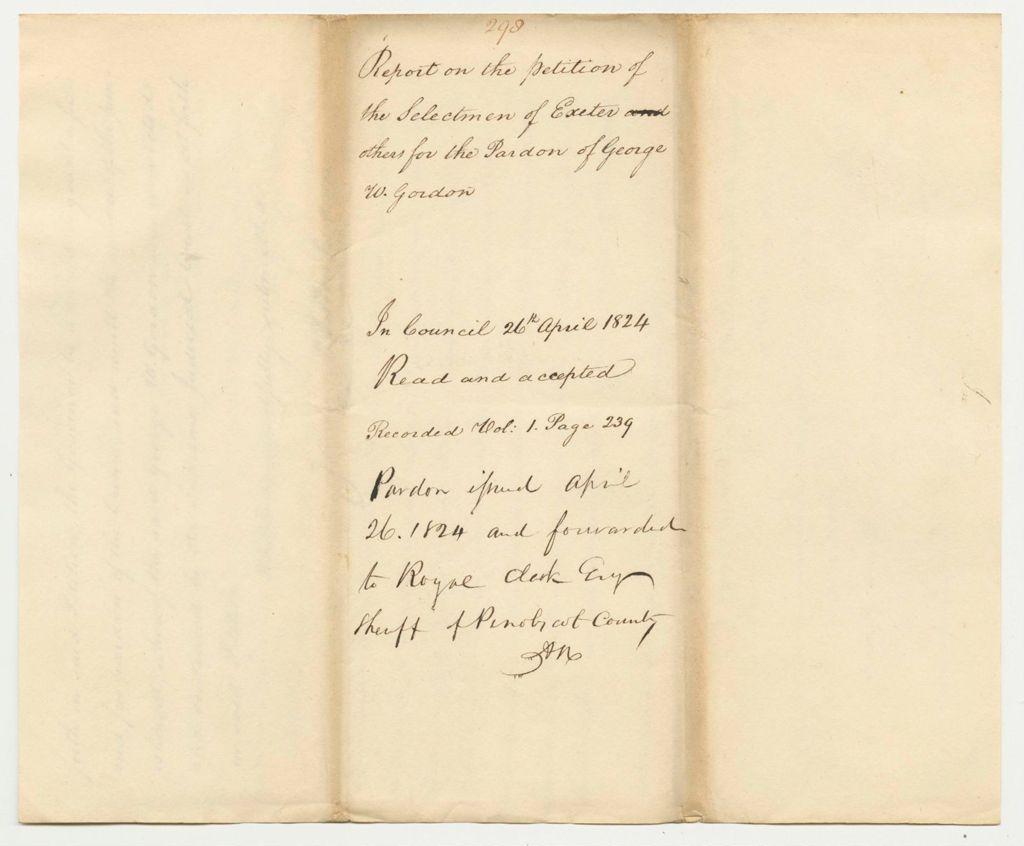 298
Report on the petition of
the Selectmen of Exeter and
others for the Pardon of George
W. Gordon
In Council 26th April 1824
Read and accepted
Recorded Vol: 1. Page 239
Pardon issued April
26. 1824 and forwarded
to Royal Clark Esq
Sheriff of Penobscot County